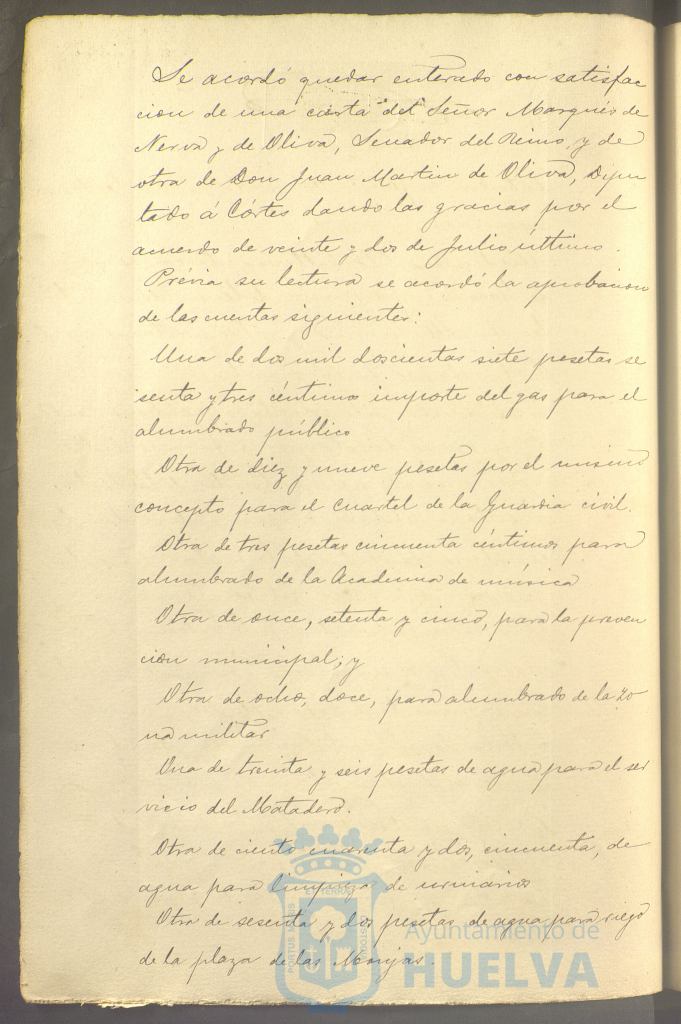 Se acordó quedar enterado con satisfac
cion de una carta del Señor Marqués de
Nerva y de Oliva, Senador del Reino, y de
otra de Don Juan Martin de Oliva, Dipu
tado á Córtes dando las gracias por el
acuerdo de veinte y dos de Julio último.
Prévia su lectura se acordó la aprobacion
de las cuentas siguientes:
Una de dos mil doscientas siete pesetas se
senta y tres céntimos importe del gas para el
alumbrado público
Otra de diez y nueve pesetas por el mismo
concepto para el Cuartel de la Guardia civil.
Otra de tres pesetas cincuenta céntimos para
alumbrado de la Academia de música
Otra de once, setenta y cinco, para la preven
cion municipal; y
Otra de ocho, doce, para alumbrado de la zo
na militar
Una de treinta y seis pesetas de agua para el ser
vicio del Matadero.
Otra de ciento cuarenta y dos, cincuenta, de
agua para limpieza de urinarios
Otra de sesenta y dos pesetas de agua para riego
de la plaza de las Monjas.
Ayuntamiento de
HUELVA